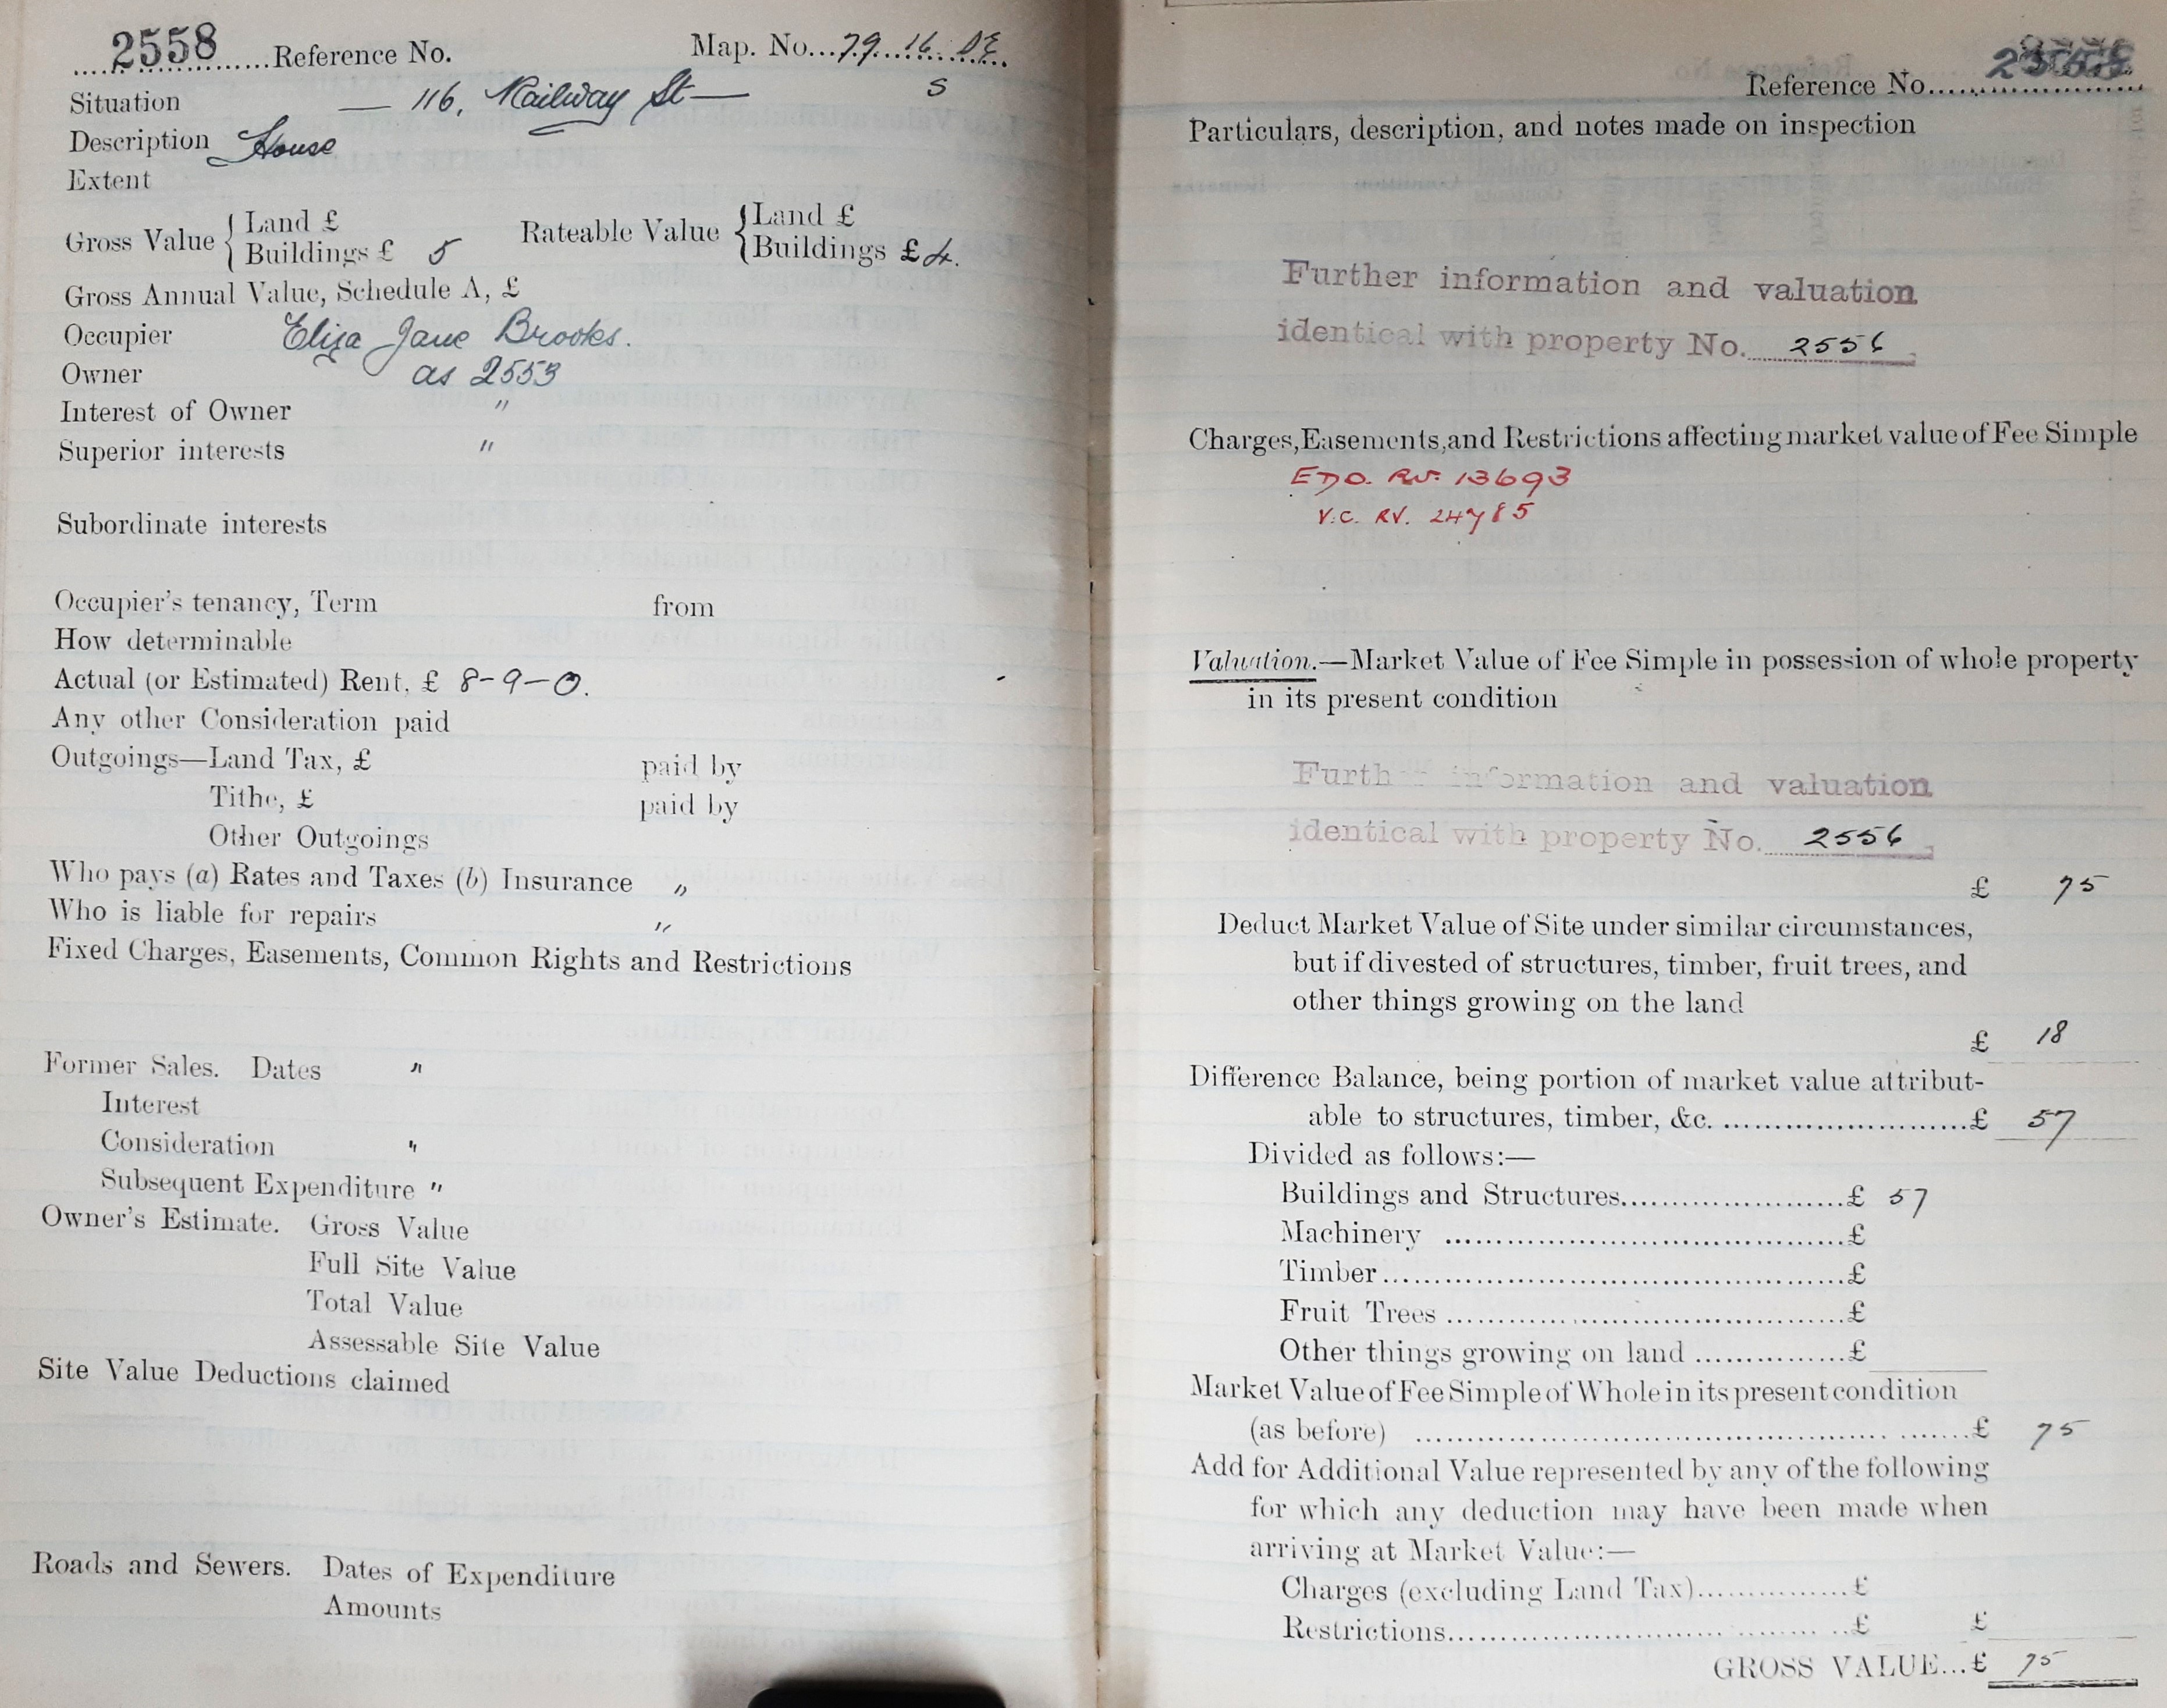 2558 Reference No. Map. No. 79. 16. DE
S
Situation — 116, Railway St —
Description House
Extent
Gross Value { Land £
Buildings £ 5
Rateable Value { Land £
Buildings £ 4.
Gross Annual Value, Schedule A, £
Occupier Eliza Jane Brooks.
Owner as 2553
Interest of Owner "
Superior interests "
Subordinate interests
Occupier's tenancy, Term from
How determinable
Actual (or Estimated) Rent, £ 8-9-0.
Any other Consideration paid
Outgoings—Land Tax, £ paid by
Tithe, £ paid by
Other Outgoings
Who pays (a) Rates and Taxes (b) Insurance "
Who is liable for repairs "
Fixed Charges, Easements, Common Rights and Restrictions
Former Sales. Dates "
Interest
Consideration "
Subsequent Expenditure "
Owner's Estimate. Gross Value
Full Site Value
Total Value
Assessable Site Value
Site Value Deductions claimed
Roads and Sewers. Dates of Expenditure
Amounts
Reference No.
Particulars, description, and notes made on inspection
Further information and valuation
identical with property No. 2556
Charges, Easements, and Restrictions affecting market value of Fee Simple
EDO. RV. 13693
V.C. RV. 24785
Valuation.—Market Value of Fee Simple in possession of whole property
in its present condition
Further information and valuation
identical with property No. 2556
£ 75
Deduct Market Value of Site under similar circumstances,
but if divested of structures, timber, fruit trees, and
other things growing on the land
£ 18
Difference Balance, being portion of market value attribut-
able to structures, timber, &c. £ 57
Divided as follows:—
Buildings and Structures £ 57
Machinery £
Timber £
Fruit Trees £
Other things growing on land £
Market Value of Fee Simple of Whole in its present condition
(as before) £ 75
Add for Additional Value represented by any of the following
for which any deduction may have been made when
arriving at Market Value:—
Charges (excluding Land Tax) £
Restrictions £ £
GROSS VALUE... £ 75